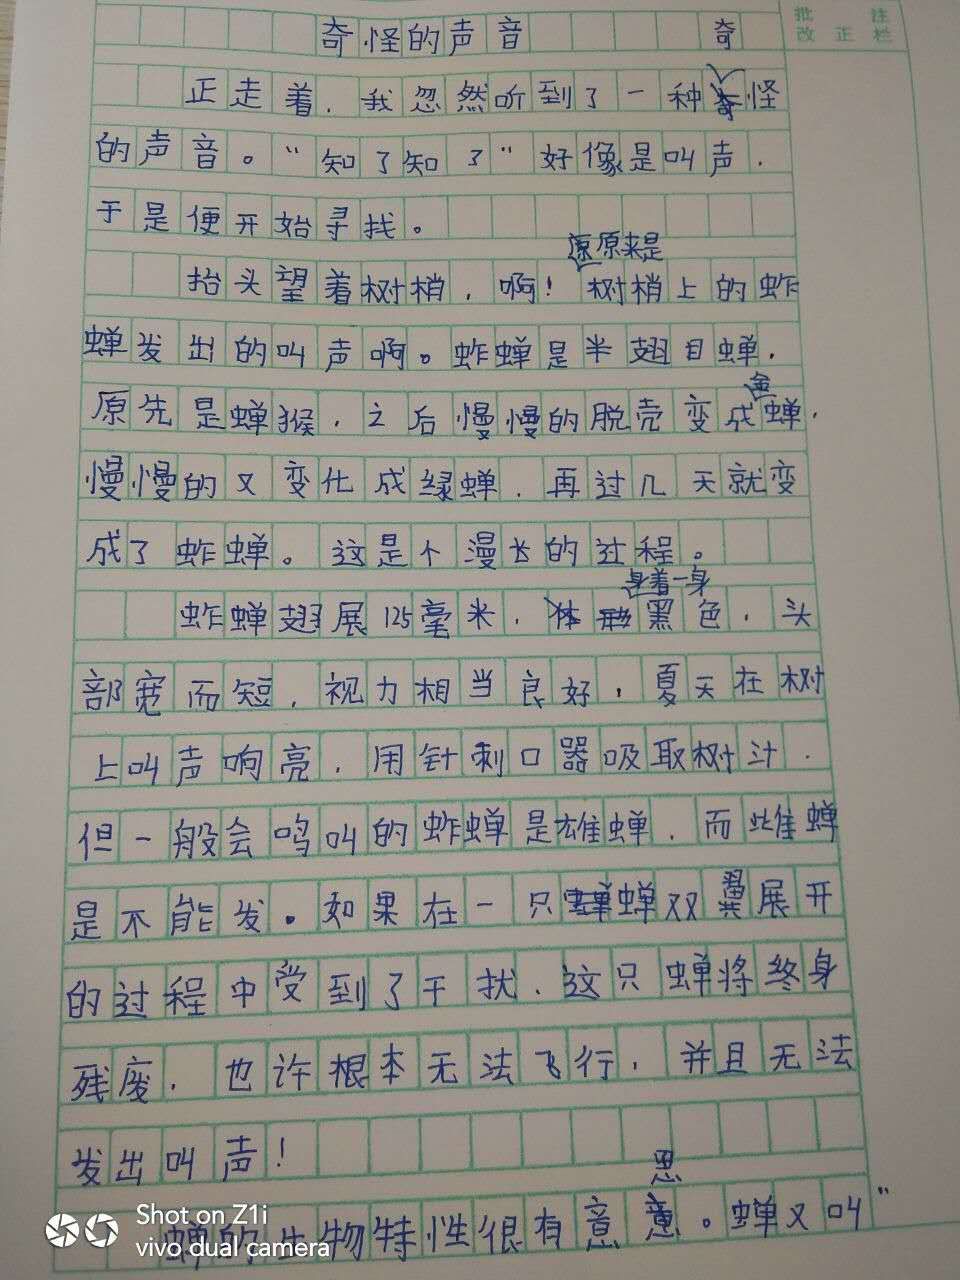 批注
改正栏
奇怪的声音
正走着，我忽然听到了一种奇怪
的声音。“知了知了”好像是叫声，
于是便开始寻找。
抬头望着树梢，啊！原来是树梢上的蚱
蝉发出的叫声啊。蚱蝉是半翅目蝉，
原先是蝉猴，之后慢慢的脱壳变成金蝉，
慢慢的又变化成绿蝉，再过几天就变
成了蚱蝉。这是个漫长的过程。
蚱蝉翅展125毫米，身着一身黑色，头
部宽而短，视力相当良好，夏天在树
上叫声响亮，用针刺口器吸取树汁，
但一般会鸣叫的蚱蝉是雄蝉，而雌蝉
是不能发。如果在一只蝉双翼展开
的过程中受到了干扰，这只蝉将终身
残废，也许根本无法飞行，并且无法
发出叫声！
蝉的生物特性很有意思。蝉又叫“
Shot on Z1i
vivo dual camera